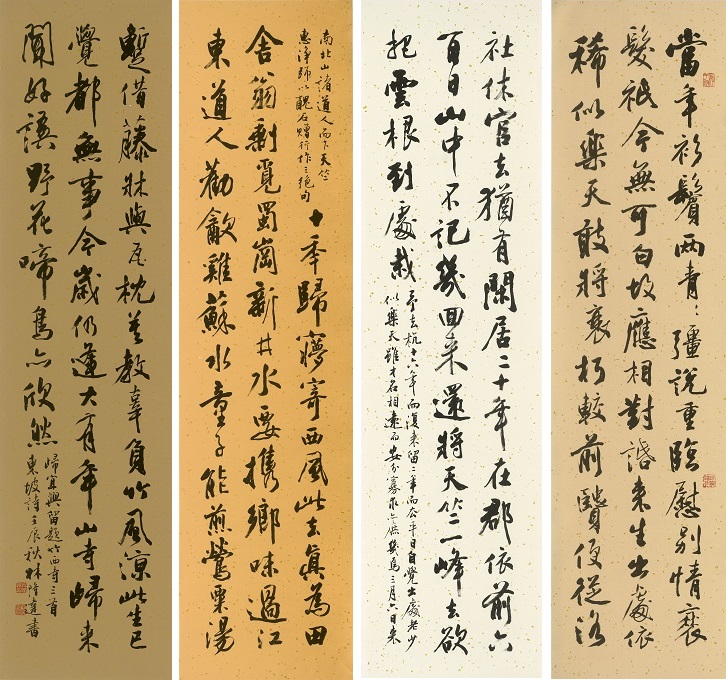 當年衫鬢兩青〻彊說重臨慰別情衰
髮祇今無可白故應相對話來生出處依
稀似樂天敢將衰朽較前賢便從洛
社休官去猶有閑居二十年在郡依前六
百日山中不記幾回來還將天竺一峰去欲
把雲根到處栽
予去杭十六年而復來留二年而去平日自覺出處老少
似樂天雖才名相遠而安分寡求亦庶幾焉三月六日來
南北山諸道人而下天竺
惠淨師以醜石贈行作三絕句
十年歸夢寄西風此去真為田
舍翁剩覓蜀崗新井水要攜鄉味過江
東道人勸飲雞蘇水童子能煎鶯粟湯
暫借藤床與瓦枕莫教辜負竹風涼此生已
覺都無事今歲仍逢大有年山寺歸來
聞好語野花啼鳥亦欣然
歸宜興留題竹西寺三首
東坡詩壬辰秋林隆達書